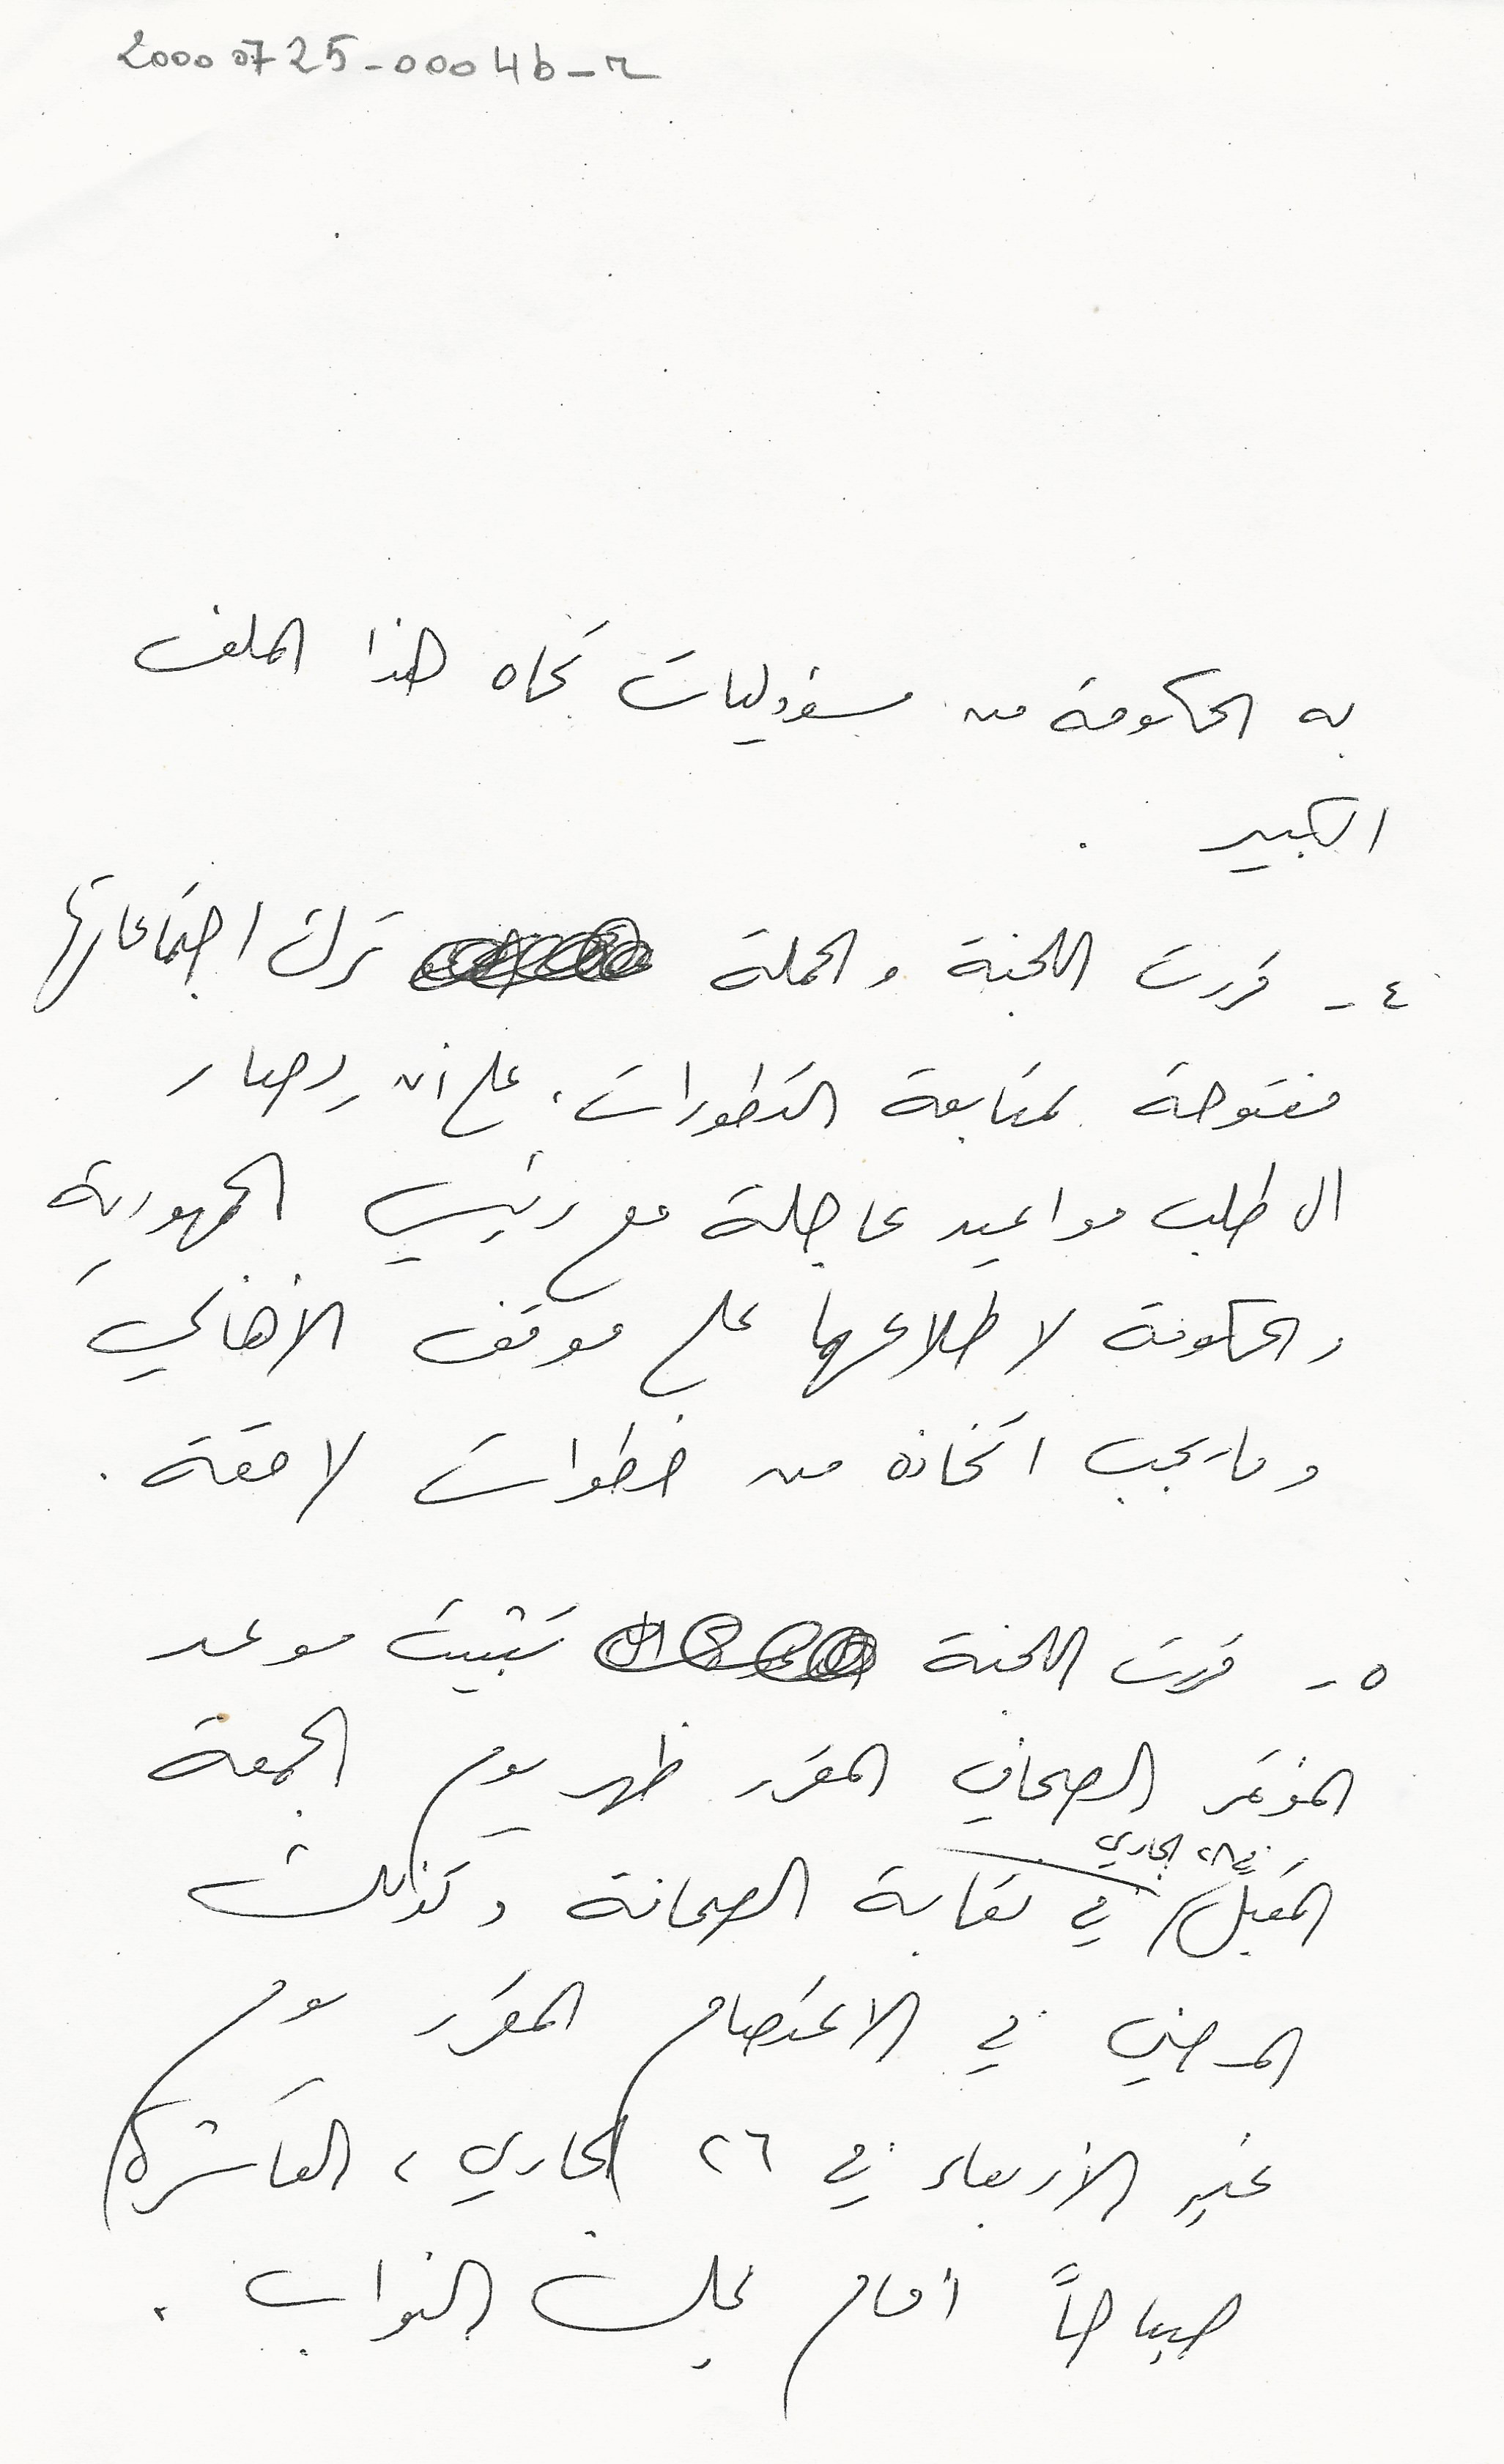 20000725-0004b-r
به الحكومة من مسؤوليات تجاه هذا الملف
الكبير .
٤ - قررت اللجنة والحملة ترك اجتماعاتها
مفتوحة لمتابعة التطورات، على أن يصار
الى طلب مواعيد عاجلة مع رئيس الجمهورية
والحكومة لاطلاعهما على موقف الأهالي
وما يجب اتخاذه من خطوات لاحقة .
٥ - قررت اللجنة تثبيت موعد
المؤتمر الصحافي المقرر ظهر يوم الجمعة
المقبل في ٢٨ الجاري في نقابة الصحافة وكذلك
المضي في الاعتصام المقرر يوم
غدٍ الأربعاء في ٢٦ الجاري، العاشرة
صباحاً أمام مجلس النواب .